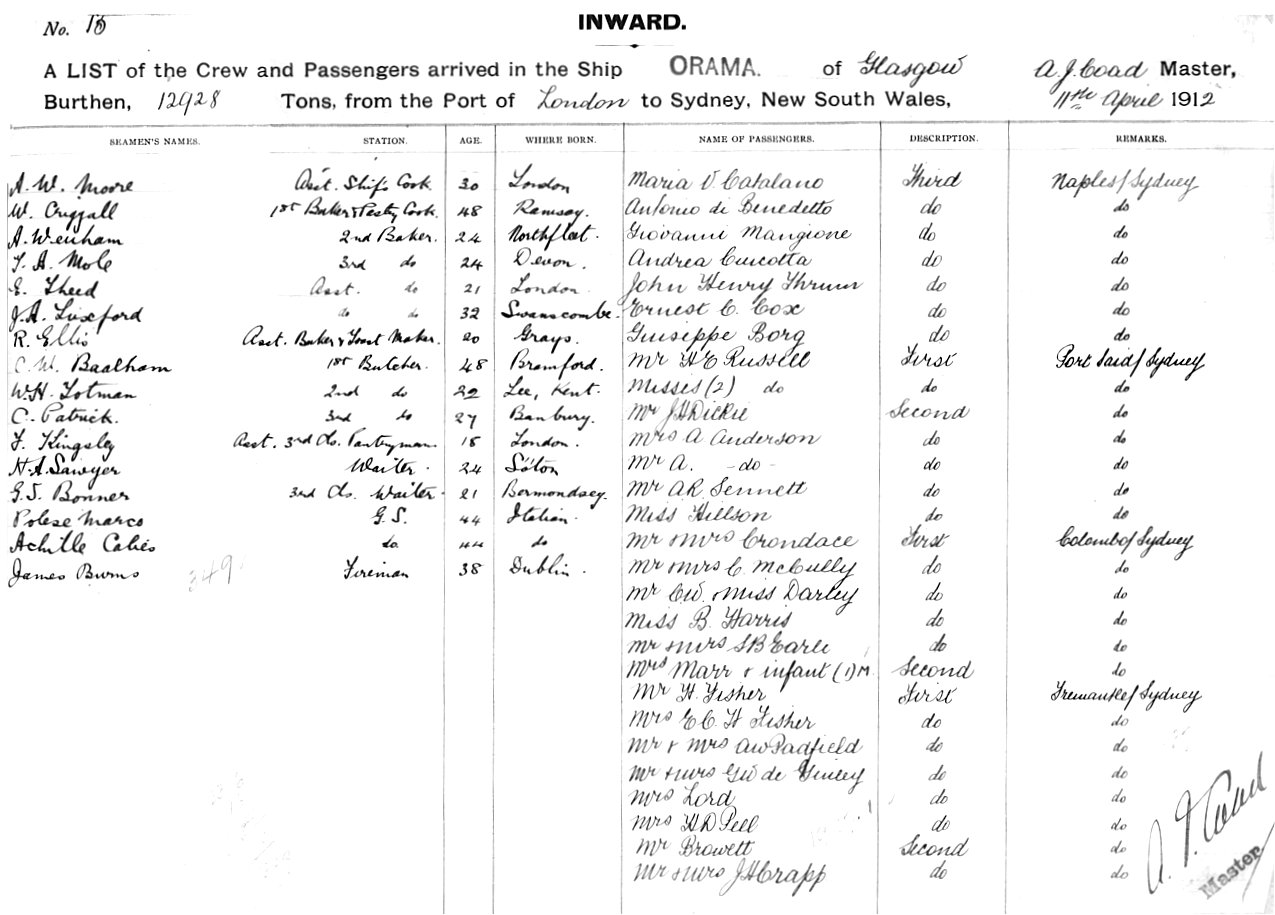 No. 15
INWARD.
A LIST of the Crew and Passengers arrived in the Ship ORAMA. of Glasgow A.J. Coad Master,
Burthen, 12928 Tons, from the Port of London to Sydney, New South Wales, 11th April 1912
SEAMEN'S NAMES. STATION. AGE. WHERE BORN. NAME OF PASSENGERS. DESCRIPTION. REMARKS.
A. W. Moore Asst. Ship's Cook 30 London Maria V. Catalano Third Naples/Sydney
W. Criggall 1st Baker & Pastry Cook 48 Ramsay. Antonio di Benedetto do do
A. Wenham 2nd Baker. 24 Northfleet. Giovanni Mangione do do
A. Mole 3rd do 24 Devon. Andrea do do
E. Theed Asst. do 21 London. John Henry do do
J.A. Luxford do do 32 Swanscombe. Ernest C. Cox do do
R. Ellis Asst. Baker & Toast Maker. 20 Grays. Giuseppe Borg do do
C. W. Baalham 1st Butcher. 48 Bramford. Mr H E Russell First Port Said/Sydney
W.H. Totman 2nd do 22 Lee, Kent. Misses (2) do do do
C. Patrick. 3rd do 27 Banbury. Mr J H Dickie Second do
F. Kingsly Asst. 3rd Cls. Pantryman 18 London. Mrs A Anderson do do
H.A. Sawyer Waiter. 24 Mr A. - do - do do
G.S. Bonner 3rd Cls. Waiter. 21 Bermondsey. Mr A R. Sennett do do
Polese Marco G.S. 44 Italian. Miss Hillson do do
Achille Calies do. 44 do Mr & Mrs Crondace First Colombo/Sydney
James Burns 349 Fireman 38 Dublin. Mr & Mrs C. McCully do do
Mr C W. & Miss Darley do do
Miss B. Harris do do
Mr & Mrs S B Earle do do
Mrs Marr & infant (1) M. Second do
Mr H. Fisher First Fremantle/Sydney
Mrs E C. H Fisher do do
Mr & Mrs A W Padfield do do
Mr & Mrs G W de do do
Mrs Lord do do
Mrs H D Pell do do
Mr Browett Second do
Mr & Mrs J H Crapp do do
A. J. Coad
Master